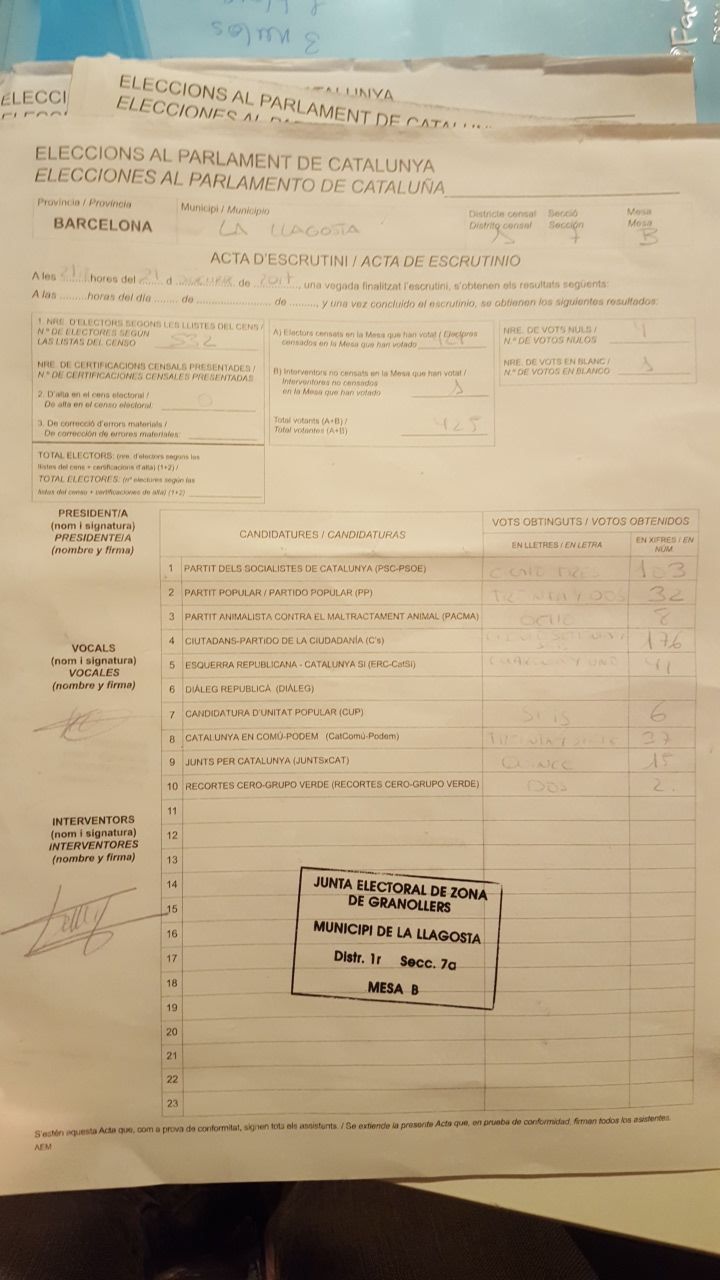 3 
ELECCI
ELECCIONS AL PARLAMENT DE CATALUNYA
ELECCIONS AL PARLAMENT DE CATALUNYA
ELECCIONES AL PARLAMENTO DE CATALUÑA
Província / Provincia
BARCELONA
Municipi / Municipio
LA LLAGOSTA
Districte censal
Distrito censal
Secció
Sección
7
Mesa
Mesa
B
ACTA D'ESCRUTINI / ACTA DE ESCRUTINIO
A les 21 hores del 21 d de 2017, una vegada finalitzat l'escrutini, s'obtenen els resultats següents:
A las ........horas del día ....... de ........................ de ........, y una vez concluido el escrutinio, se obtienen los siguientes resultados:
1. NRE. D'ELECTORS SEGONS LES LLISTES DEL CENS /
N.º DE ELECTORES SEGÚN
LAS LISTAS DEL CENSO 532
NRE. DE CERTIFICACIONS CENSALS PRESENTADES /
N.º DE CERTIFICACIONES CENSALES PRESENTADAS
2. D'alta en el cens electoral /
De alta en el censo electoral: 0
3. De correcció d'errors materials /
De corrección de errores materiales:
TOTAL ELECTORS: (nre. d'electors segons les
llistes del cens + certificacions d'alta) (1+2) /
TOTAL ELECTORES: (nº electores según las
listas del censo + certificaciones de alta) (1+2)
A) Electors censats en la Mesa que han votat / Electores
censados en la Mesa que han votado
B) Interventors no censats en la Mesa que han votat /
Interventores no censados
en la Mesa que han votado 1
Total votants (A+B) /
Total votantes (A+B) 425
NRE. DE VOTS NULS /
N.º DE VOTOS NULOS 4
NRE. DE VOTS EN BLANC /
N.º DE VOTOS EN BLANCO 1
PRESIDENT/A
(nom i signatura)
PRESIDENTE/A
(nombre y firma)
VOCALS
(nom i signatura)
VOCALES
(nombre y firma)
INTERVENTORS
(nom i signatura)
INTERVENTORES
(nombre y firma)
CANDIDATURES / CANDIDATURAS
VOTS OBTINGUTS / VOTOS OBTENIDOS
EN LLETRES / EN LETRA
EN XIFRES / EN NÚM.
1 PARTIT DELS SOCIALISTES DE CATALUNYA (PSC-PSOE) 103
2 PARTIT POPULAR / PARTIDO POPULAR (PP) TREINTA Y DOS 32
3 PARTIT ANIMALISTA CONTRA EL MALTRACTAMENT ANIMAL (PACMA) OCHO 8
4 CIUTADANS-PARTIDO DE LA CIUDADANÍA (C's) 176
5 ESQUERRA REPUBLICANA - CATALUNYA SÍ (ERC-CatSí) CUARENTA Y UNO 41
6 DIÀLEG REPUBLICÀ (DIÀLEG)
7 CANDIDATURA D'UNITAT POPULAR (CUP) SEIS 6
8 CATALUNYA EN COMÚ-PODEM (CatComú-Podem) TREINTA Y SIETE 37
9 JUNTS PER CATALUNYA (JUNTSxCAT) QUINCE 15
10 RECORTES CERO-GRUPO VERDE (RECORTES CERO-GRUPO VERDE) DOS 2.
11
12
13
14
15
16
17
18
19
20
21
22
23
JUNTA ELECTORAL DE ZONA
DE GRANOLLERS
MUNICIPI DE LA LLAGOSTA
Distr. 1r Secc. 7a
MESA B
S'estén aquesta Acta que, com a prova de conformitat, signen tots els assistents. / Se extiende la presente Acta que, en prueba de conformidad, firman todos los asistentes.
AEM